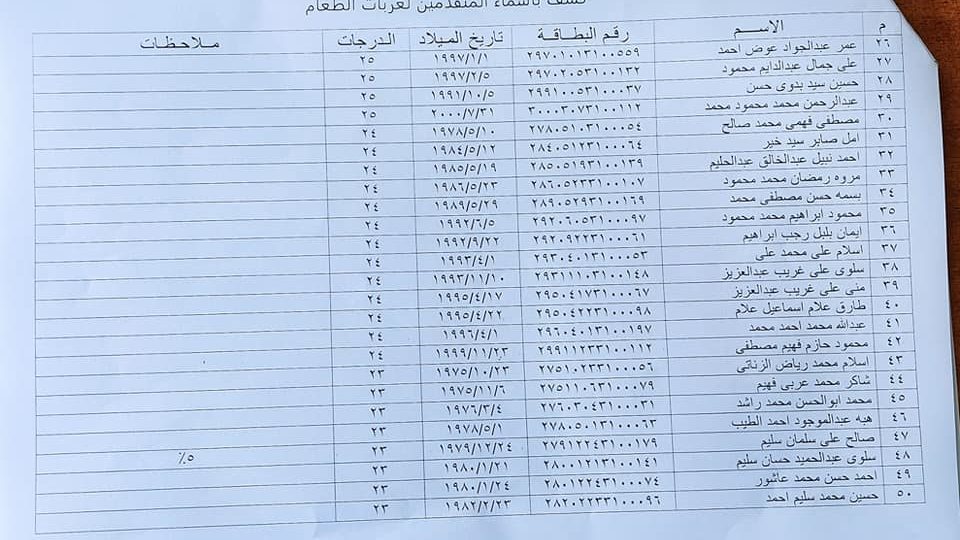 كشف بأسماء المتقدمين لعربات الطعام
م الاســـم رقم البطاقة تاريخ الميلاد الدرجات ملاحظات
٢٦ عمر عبدالجواد عوض احمد ٢٩٧٠١٠١٣١٠٠٥٥٩ ١٩٩٧/١/١ ٢٥
٢٧ على جمال عبدالدايم محمود ٢٩٧٠٢٠٥٣١٠٠١٣٢ ١٩٩٧/٢/٥ ٢٥
٢٨ حسين سيد بدوى حسن ٢٩٩١٠٠٥٣١٠٠٠٣٧ ١٩٩١/١٠/٥ ٢٥
٢٩ عبدالرحمن محمد محمود محمد ٣٠٠٠٣٠٧٣١٠٠١١٢ ٢٠٠٠/٧/٣١ ٢٥
٣٠ مصطفى فهمى محمد صالح ٢٧٨٠٥١٠٣١٠٠٠٥٤ ١٩٧٨/٥/١٠ ٢٤
٣١ امل صابر سيد خير ٢٨٤٠٥١٢٣١٠٠٠٦٤ ١٩٨٤/٥/١٢ ٢٤
٣٢ احمد نبيل عبدالخالق عبدالحليم ٢٨٥٠٥١٩٣١٠٠١٣٩ ١٩٨٥/٥/١٩ ٢٤
٣٣ مروه رمضان محمد محمود ٢٨٦٠٥٢٣٣١٠٠١٠٧ ١٩٨٦/٥/٢٣ ٢٤
٣٤ بسمه حسن مصطفى محمد ٢٨٩٠٥٢٩٣١٠٠١٦٩ ١٩٨٩/٥/٢٩ ٢٤
٣٥ محمود ابراهيم محمد محمود ٢٩٢٠٦٠٥٣١٠٠٠٩٧ ١٩٩٢/٦/٥ ٢٤
٣٦ ايمان بليل رجب ابراهيم ٢٩٢٠٩٢٢٣١٠٠٠٦١ ١٩٩٢/٩/٢٢ ٢٤
٣٧ اسلام على محمد على ٢٩٣٠٤٠١٣١٠٠٠٥٣ ١٩٩٣/٤/١ ٢٤
٣٨ سلوى على غريب عبدالعزيز ٢٩٣١١١٠٣١٠٠١٤٨ ١٩٩٣/١١/١٠ ٢٤
٣٩ منى على غريب عبدالعزيز ٢٩٥٠٤١٧٣١٠٠٠٦٧ ١٩٩٥/٤/١٧ ٢٤
٤٠ طارق علام اسماعيل علام ٢٩٥٠٤٢٢٣١٠٠٠٩٨ ١٩٩٥/٤/٢٢ ٢٤
٤١ عبدالله محمد احمد محمد ٢٩٦٠٤٠١٣١٠٠١٩٧ ١٩٩٦/٤/١ ٢٤
٤٢ محمود حازم فهيم مصطفى ٢٩٩١١٢٣٣١٠٠١١٢ ١٩٩٩/١١/٢٣ ٢٤
٤٣ اسلام محمد رياض الزناتى ٢٧٥١٠٢٣٣١٠٠٠٥٦ ١٩٧٥/١٠/٢٣ ٢٣
٤٤ شاكر محمد عربى فهيم ٢٧٥١١٠٦٣١٠٠٠٧٩ ١٩٧٥/١١/٦ ٢٣
٤٥ محمد ابوالحسن محمد راشد ٢٧٦٠٣٠٤٣١٠٠٠٣١ ١٩٧٦/٣/٤ ٢٣
٤٦ هبه عبدالموجود احمد الطيب ٢٧٨٠٥٠١٣١٠٠٠٦٣ ١٩٧٨/٥/١ ٢٣
٤٧ صالح على سلمان سليم ٢٧٩١٢٢٤٣١٠٠١٧٩ ١٩٧٩/١٢/٢٤ ٢٣ ٥٪
٤٨ سلوى عبدالحميد حسان سليم ٢٨٠٠١٢١٣١٠٠١٤١ ١٩٨٠/١/٢١ ٢٣
٤٩ احمد حسن محمد عاشور ٢٨٠١٢٢٤٣١٠٠٠٧٤ ١٩٨٠/١/٢٤ ٢٣
٥٠ حسين محمد سليم احمد ٢٨٢٠٢٢٣٣١٠٠٠٩٦ ١٩٨٢/٢/٢٣ ٢٣